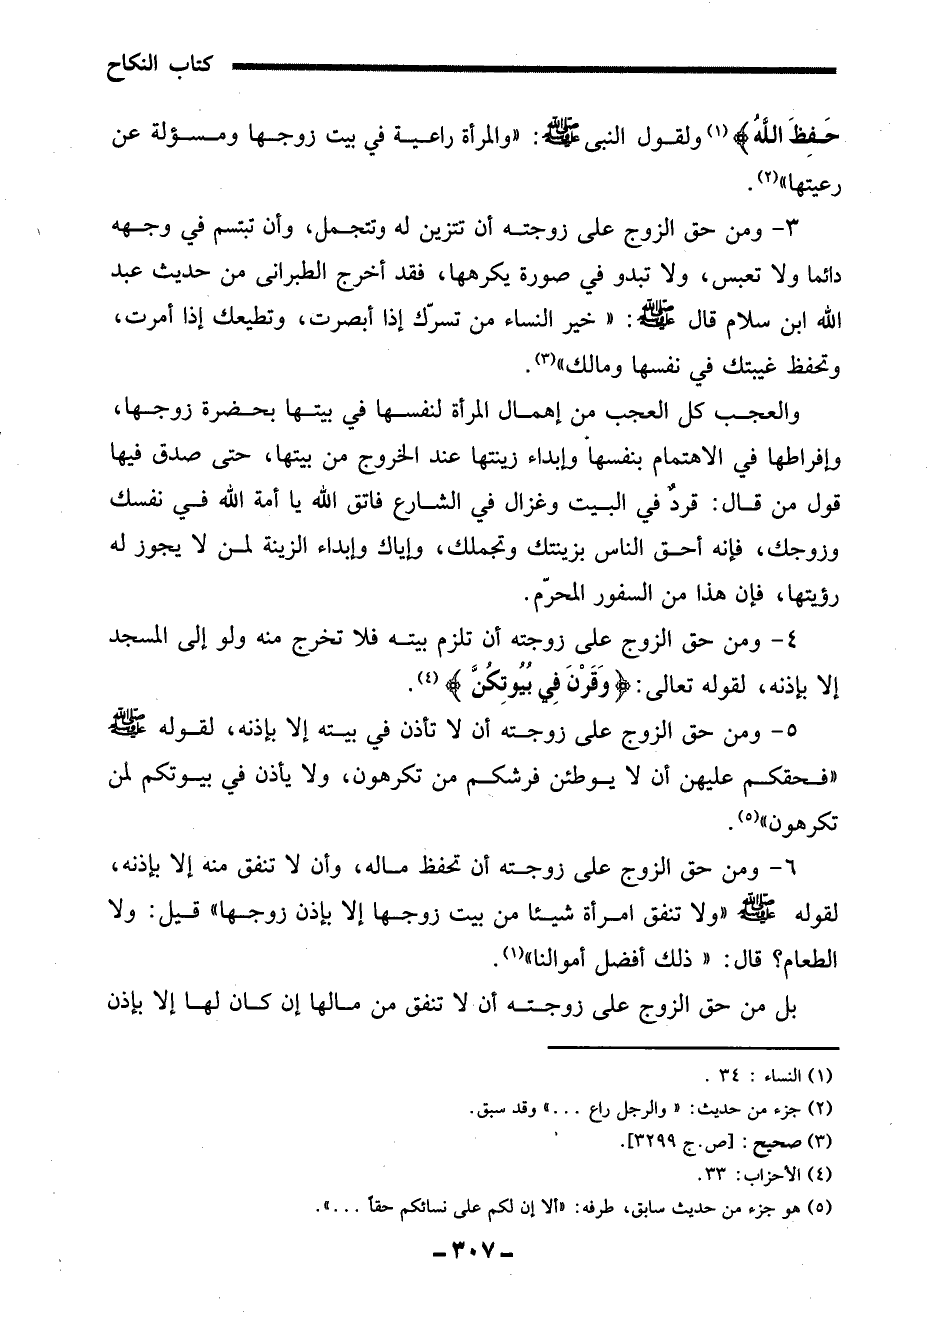 كتاب النكاح
حَفِظَ اللَّهُ﴾(١) ولقول النبى ﷺ: «والمرأة راعية في بيت زوجها ومسؤلة عن
رعيتها»(٢).
٣- ومن حق الزوج على زوجته أن تتزين له وتتجمل، وأن تبتسم في وجهه
دائما ولا تعبس، ولا تبدو في صورة يكرهها، فقد أخرج الطبرانى من حديث عبد
الله ابن سلام قال ﷺ: « خير النساء من تسرّك إذا أبصرت، وتطيعك إذا أمرت،
وتحفظ غيبتك في نفسها ومالك»(٣).
والعجب كل العجب من إهمال المرأة لنفسها في بيتها بحضرة زوجها،
وإفراطها في الاهتمام بنفسها وإبداء زينتها عند الخروج من بيتها، حتى صدق فيها
قول من قال: قردٌ في البيت وغزال في الشارع فاتق الله يا أمة الله في نفسك
وزوجك، فإنه أحق الناس بزينتك وتجملك، وإياك وإبداء الزينة لمن لا يجوز له
رؤيتها، فإن هذا من السفور المحرّم.
٤- ومن حق الزوج على زوجته أن تلزم بيته فلا تخرج منه ولو إلى المسجد
إلا بإذنه، لقوله تعالى: ﴿وَقَرْنَ فِي بُيُوتِكُنَّ﴾(٤).
٥- ومن حق الزوج على زوجته أن لا تأذن في بيته إلا بإذنه، لقوله ﷺ
«فحقكم عليهن أن لا يوطئن فرشكم من تكرهون، ولا يأذن في بيوتكم لمن
تكرهون»(٥).
٦- ومن حق الزوج على زوجته أن تحفظ ماله، وأن لا تنفق منه إلا بإذنه،
لقوله ﷺ «ولا تنفق امرأة شيئا من بيت زوجها إلا بإذن زوجها» قيل: ولا
الطعام؟ قال: « ذلك أفضل أموالنا»(١).
بل من حق الزوج على زوجته أن لا تنفق من مالها إن كان لها إلا بإذن
(١) النساء : ٣٤ .
(٢) جزء من حديث: « والرجل راع ...» وقد سبق.
(٣) صحيح : [ص.ج ٣٢٩٩].
(٤) الأحزاب: ٣٣.
(٥) هو جزء من حديث سابق، طرفه: «ألا إن لكم على نسائكم حقاً ...».
ـ ٣٠٧ ـ